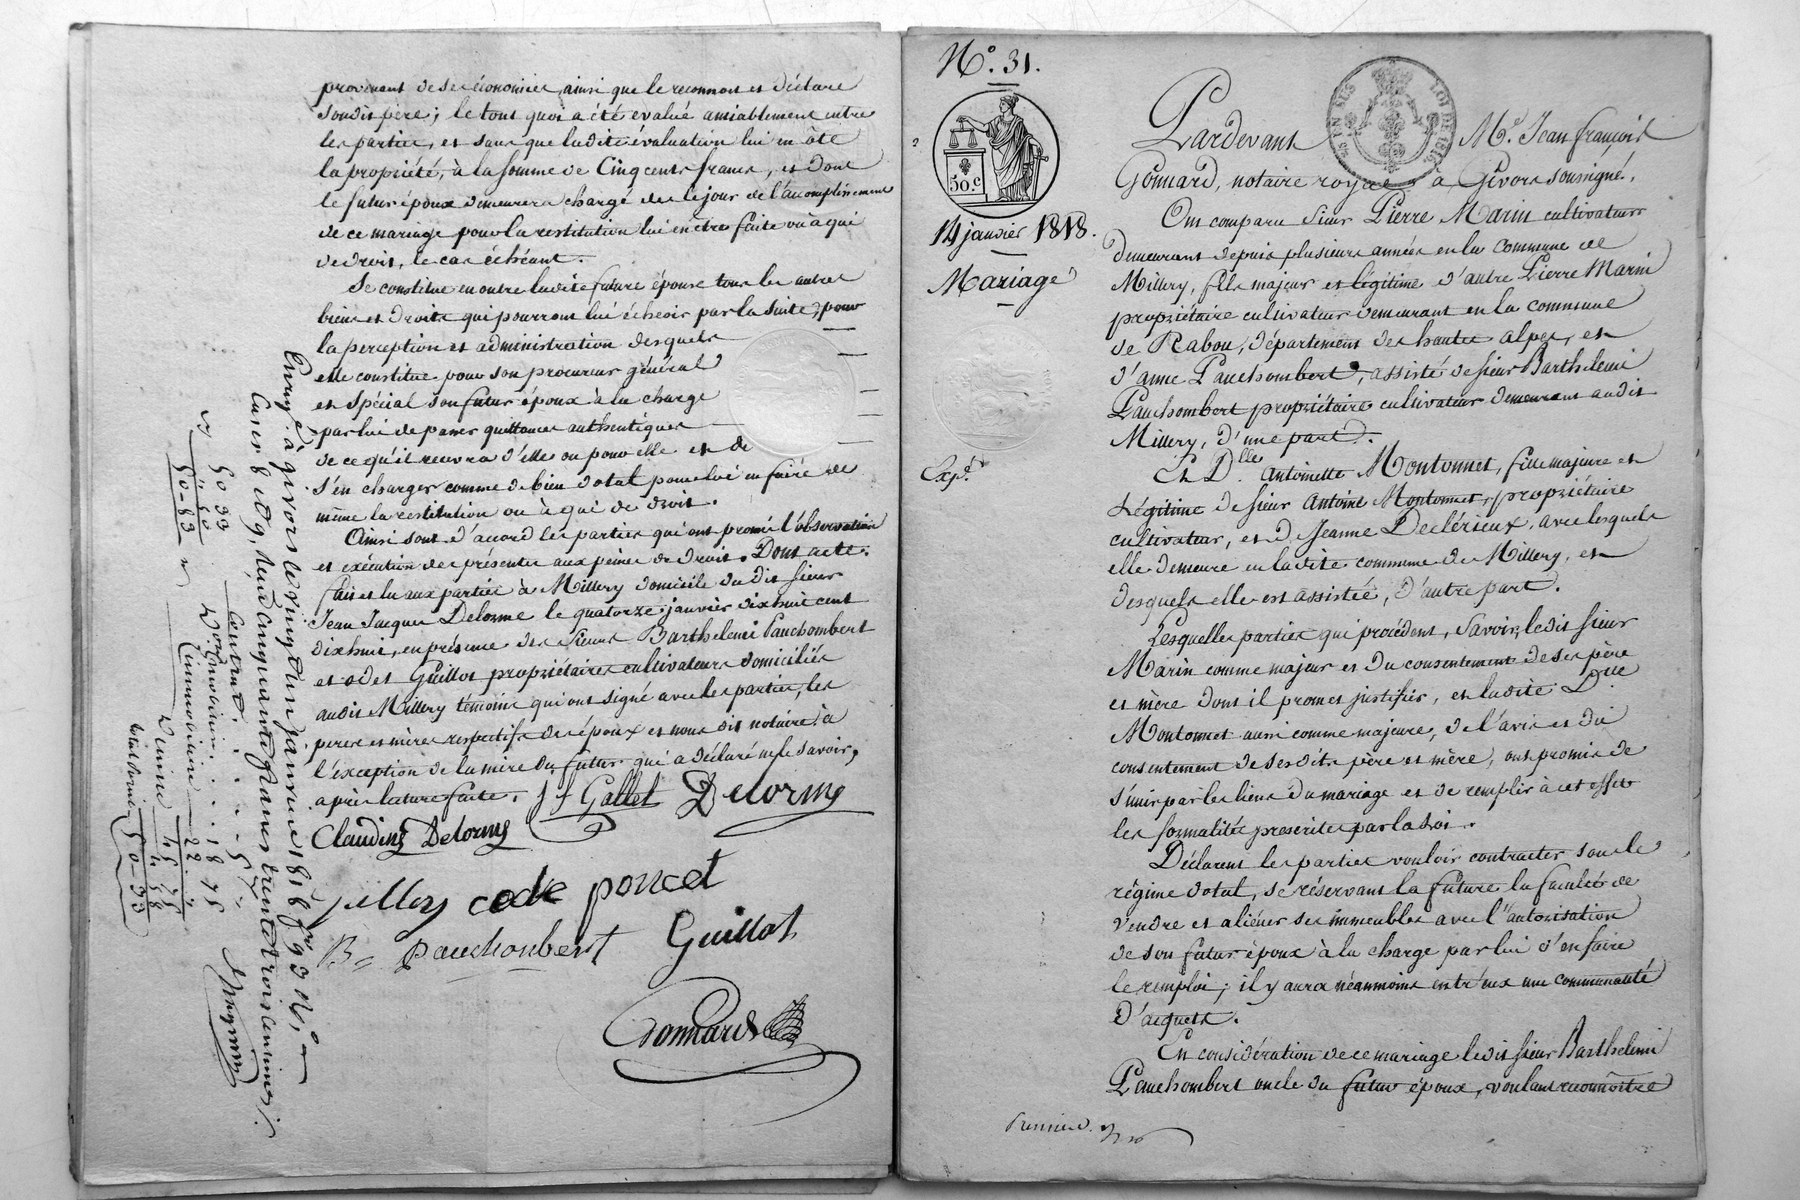 provenant de ses économies, ainsi que le reconnoit et déclare
sondit père; le tout quoi a été évalué amiablement entre
les parties, et sans que ladite évaluation lui en ôte
la propriété, à la somme de Cinq cents francs, et dont
le futur époux demeurera chargé dès le jour de l'accomplissement
de ce mariage pour la restitution lui en être faite ou à qui
de droit, le cas échéant.
Se constitue en outre ladite future épouse tous les autres
biens et droits qui pourront lui échoir par la suite, pour
la perception et administration desquels
elle constitue pour son procureur général
et spécial son futur époux à la charge
par lui de passer quittances authentiques
de ce qu'il recevra d'elle ou pour elle et de
s'en charger comme de bien dotal pour lui en faire de
même la restitution ou à qui de droit.
Ainsi sont d'accord les parties qui ont promis l'observation
et exécution des présentes aux peines de droit. Dont acte.
fait et lu aux parties à Millery domicile du dit sieur
Jean Jacques Delorme le quatorze janvier dix huit cent
dix huit, en présence des sieurs Barthelemi Pauchombert
et odet Guillot propriétaires cultivateurs domiciliés
audit Millery témoins qui ont signé avec les parties, les
peres et mères respectifs des époux et nous dit notaire à
l'exception de la mère du futur qui a déclaré ne le savoir,
après lecture faite. J f Gallet Delorme
Claudine Delorme
poncet
B= pauchonbert Guillot
Gonnard
Enreg.é à givors le vingt un janvier 1818 f.o 93 R.o
Cases 8 et 9, Reçu cinquante francs trente trois centimes.
50 33
50-83
Contrat
Mobilier 18 75
Immobilier 22
45 75
4 58
50-33
N°. 31.
50.c
14 janvier 1818.
Mariage
Exp.é
Pardevant M.e Jean françois
Gonnard, notaire royal à Givors soussigné.
Ont comparu sieur Pierre Marin cultivateur
demeurant depuis plusieurs années en la commune de
Millery, fils majeur et légitime d'autre Pierre Marin
propriétaire cultivateur demeurant en la commune
de Rabou, département des hautes alpes, et
d'anne Pauchombert, assisté de sieur Barthelemi
Pauchombert propriétaire cultivateur demeurant audit
Millery, d'une part.
Et D.lle Antoinette Montonnet, fille majeure et
Légitime de sieur Antoine Montonnet, propriétaire
cultivateur, et d. Jeanne Declérieux, avec lesquels
elle demeure en ladite commune de Millery, et
desquels elle est assistée, d'autre part.
Lesquelles parties qui procèdent, Savoir, ledit sieur
Marin comme majeur et du consentement de ses père
et mère dont il promet justifier, et ladite D.lle
Montonnet aussi comme majeure, de l'avis et du
consentement de sesdits père et mère, ont promis de
s'unir par les liens du mariage et de remplir à cet effet
les formalités prescrites par la loi.
Déclarent les parties vouloir contracter sous le
régime dotal, se réservant la future la faculté de
vendre et aliéner ses immeubles avec l'autorisation
de son futur époux à la charge par lui d'en faire
le remploi; il y aura néanmoins entr'eux une communauté
d'acquets.
En considération de ce mariage ledit sieur Barthelemi
Pauchombert oncle du futur époux, voulant reconnoître